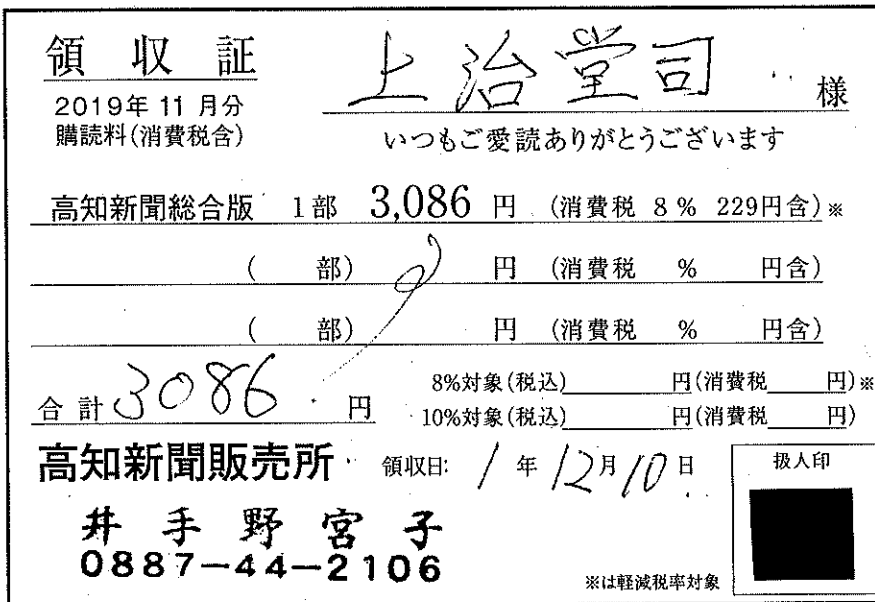 領収証
上治堂司 様
2019年 11 月分
購読料(消費税含)
いつもご愛読ありがとうございます
高知新聞総合版 1部 3,086 円 (消費税 8% 229円含)※
( 部) 円 (消費税 % 円含)
( 部) 円 (消費税 % 円含)
合計 3086 円
8%対象(税込) 円(消費税 円)※
10%対象(税込) 円(消費税 円)
高知新聞販売所
領収日: 1 年 12月 10 日
扱人印
井手野宮子
0887-44-2106
※は軽減税率対象